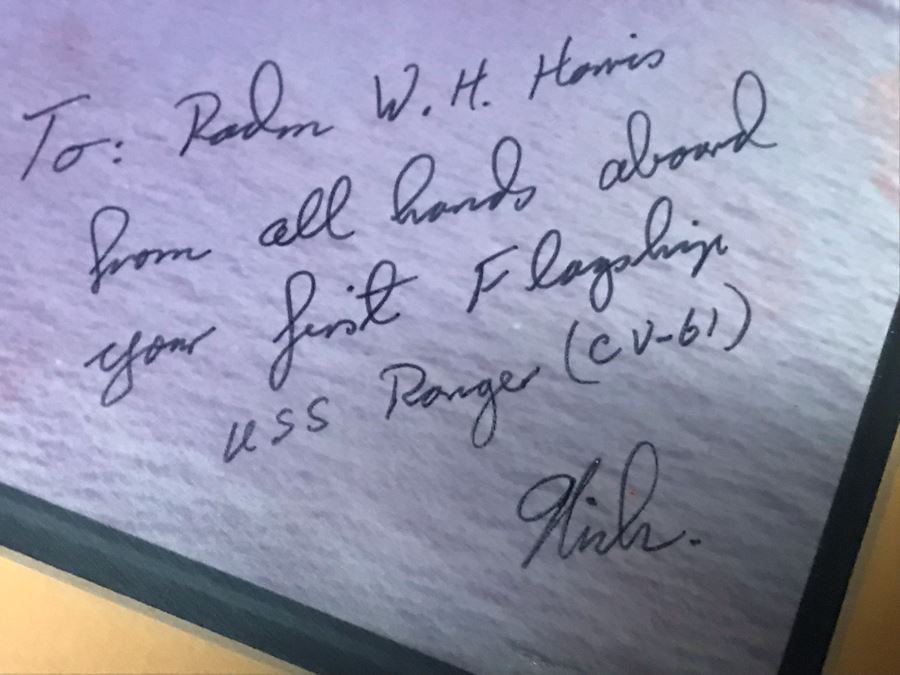 To: Radm W. H. Harris
from all hands aboard
your first Flagship
USS Ranger (CV-61)